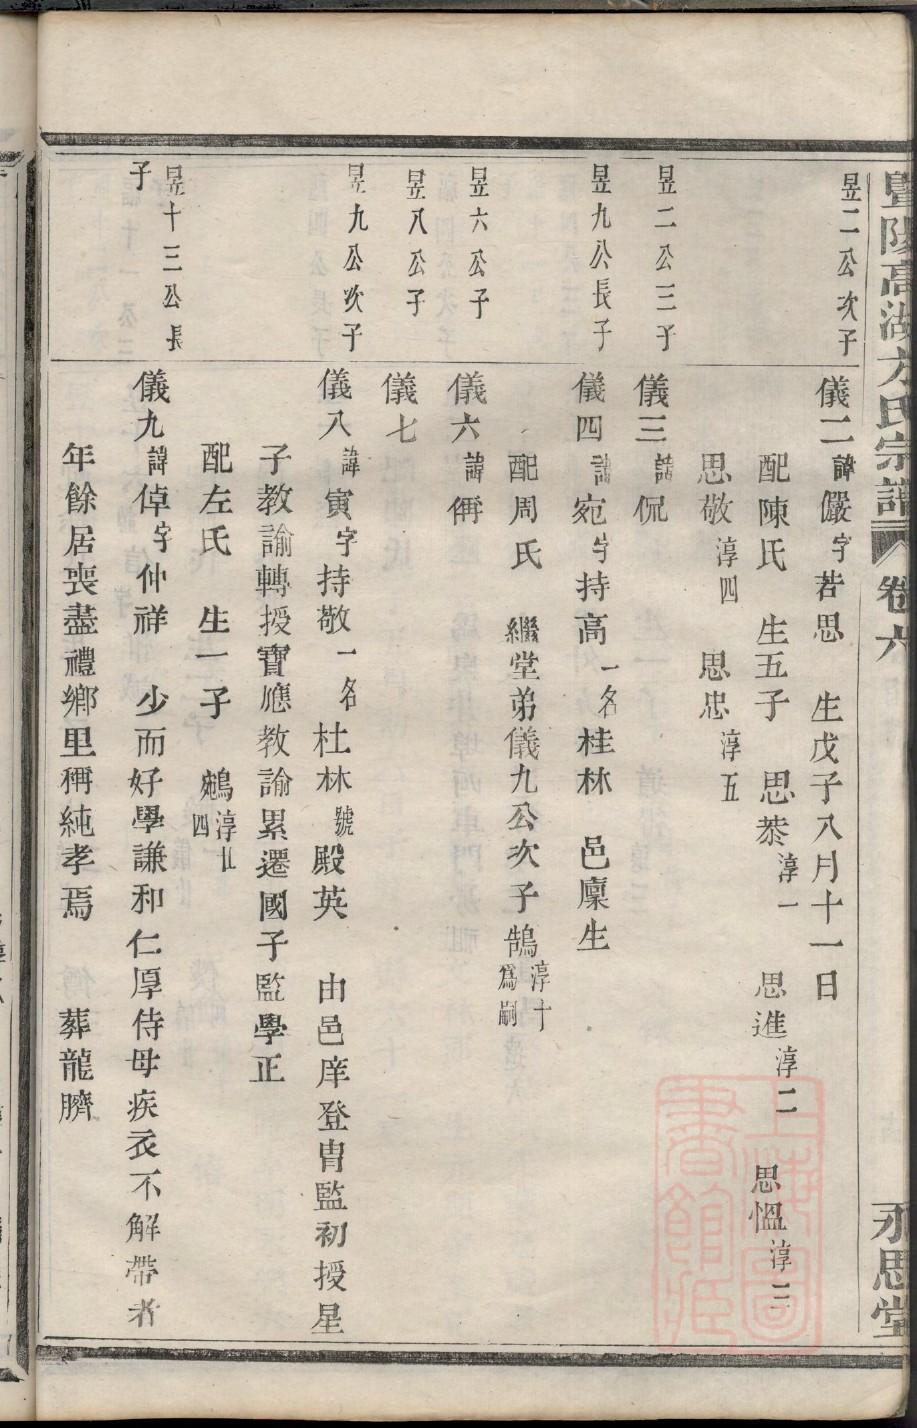 暨陽高湖方氏宗譜 卷六 永思堂
昱二公次子
儀二諱儼字若思 生戊子八月十一日
配陳氏 生五子 思恭淳一 思進淳二 思慍淳三
思敬淳四 思忠淳五
昱二公三子
儀三諱侃
昱九公長子
儀四諱宛字持高一名桂林 邑廩生
配周氏 繼堂弟儀九公次子鵠淳十爲嗣
昱六公子
儀六諱侢
昱八公子
儀七
昱九公次子
儀八諱寅字持敬一名杜林號殿英 由邑庠登胄監初授星
子教諭轉授寶應教諭累遷國子監學正
配左氏 生一子 鵷淳廿四
昱十三公長子
儀九諱倬字仲祥 少而好學謙和仁厚侍母疾衣不解帶者
年餘居喪盡禮鄉里稱純孝焉 葬龍臍
上海圖書館藏